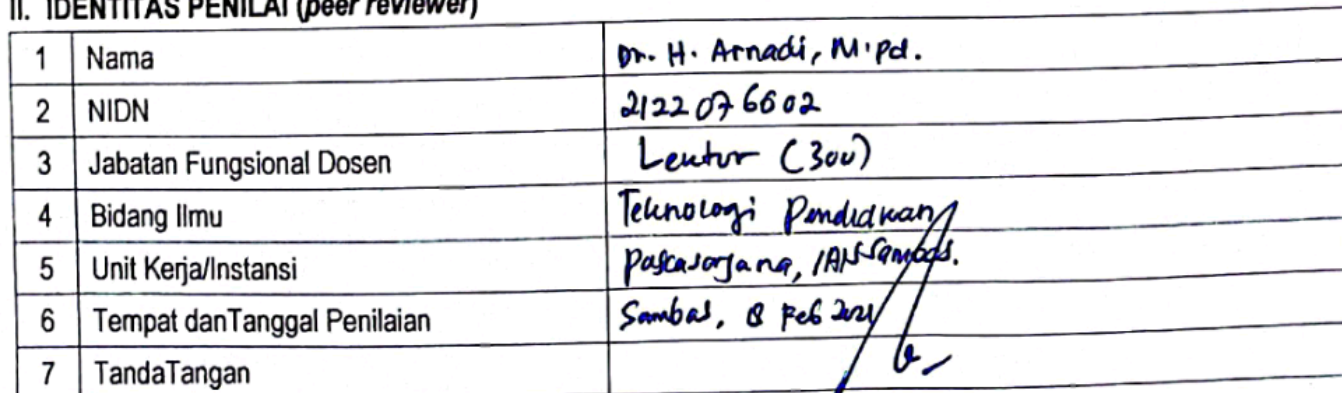 II. IDENTITAS PENILAI (peer reviewer)
1 Nama Dr. H. Arnadi, M.Pd.
2 NIDN 2122076602
3 Jabatan Fungsional Dosen Lektor (300)
4 Bidang Ilmu Teknologi Pendidikan
5 Unit Kerja/Instansi Pascasarjana, IAIS Sambas.
6 Tempat danTanggal Penilaian Sambas, Feb 2021
7 TandaTangan